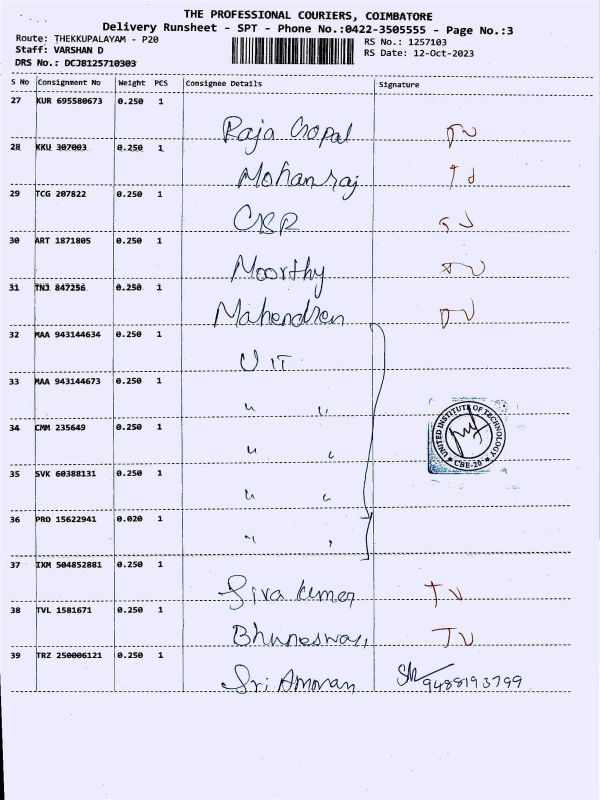 THE PROFESSIONAL COURIERS, COIMBATORE
Delivery Runsheet - SPT - Phone No.:0422-3505555 - Page No.:3
Route: THEKKUPALAYAM - P20
RS No.: 1257103
Staff: VARSHAN D
RS Date: 12-Oct-2023
DRS No.: DCJB125710303
S No Consignment No Weight PCS Consignee Details Signature
27 KUR 695580673 0.250 1
Raja Gopal
28 KKU 307003 0.250 1
Mohanraj
29 TCG 207822 0.250 1
CBR
30 ART 1871805 0.250 1
Moorthy
31 TNJ 847256 0.250 1
Mahendren
32 MAA 943144634 0.250 1
UIT
33 MAA 943144673 0.250 1
" "
34 CMM 235649 0.250 1
" "
UNITED INSTITUTE OF TECHNOLOGY
* CBE-20 *
35 SVK 60388131 0.250 1
" "
36 PRO 15622941 0.020 1
" "
37 IXM 504852881 0.250 1
Siva kumer
38 TVL 1581671 0.250 1
Bhuneswari
39 TRZ 250006121 0.250 1
Sri Ammman 9488193799